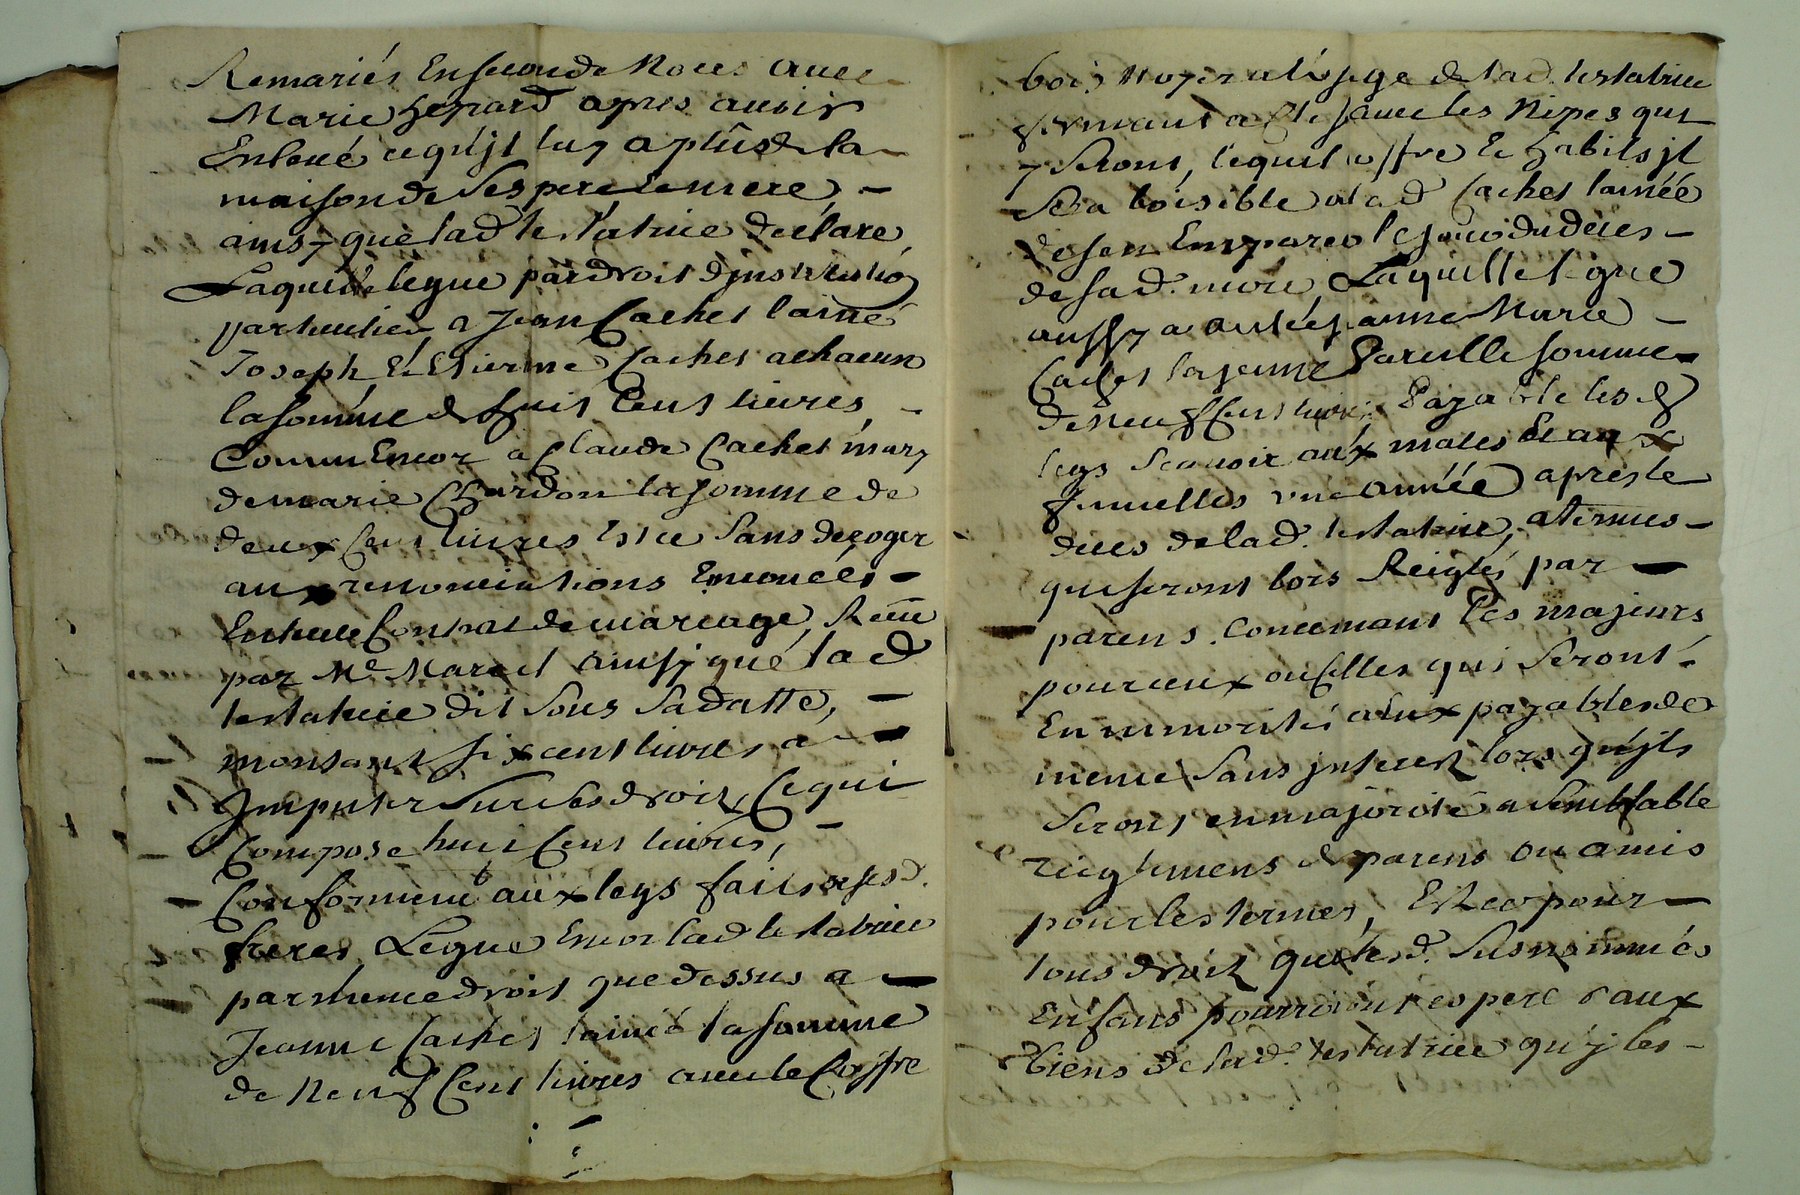 Remariés En seconde Noces avec
Marie apres avoir
Enlevé ce qu'jl luy a plû de la
maison de Ses pere et mere,
ainsy que lad testatrice declare,
Laquelle legue par droit d'jnstitutio
particuliere a Jean Cachet lainé
Joseph Et Estienne Cachet a chacun
la somme de huit Cent livres,
Comm Encor a Claude Cachet mary
de marie Chardon la somme de
deux Cent livres Et ce Sans deroger
aux renonciations Enoncées
En leur Contrat de mariage, Receu
par Me Marcel ainsy que lad
testatrice dit Sous Sa datte,
montant six cent livres a
Jmputer Sur ses droits, Ce qui
Compose huit Cent livres,
Conformemt aux legs faits a sesd.
freres, Legue Encor lad testatrice
par mesme droit que dessus a
Jeanne Cachet lainée la somme
de Neuf Cent livres avec le Coffre
bois Noyer a l'usage de lad. testatrice
fermant a Clé sauf les Nipes qui
y Seront, lequel coffre Et habits jl
Sera loisible a lad Cachet lainée
de sen Emparer le jour du deces
de sad. mere Laquelle legue
aussy a anne Marie
Cachet la jeune Pareille somme
de Neuf Cent livres Payable lesd
legs Scavoir aux males Et aux
femelles une année apres le
deces de lad. testatrice, a termes
qui seront lors Reiglés par
parens. Concernant les majeurs
pour ceux ou Celles qui Seront
En minorité a eux payables de
meme Sans jnterest lors qu'jls
Seront en majorité a Semblable
reiglemens de parens ou amis
pour les termes, Et ce pour
tous droits que lesd. Susnommés
Enfans pourroient esperer aux
biens de lad. testatrice qu'jles